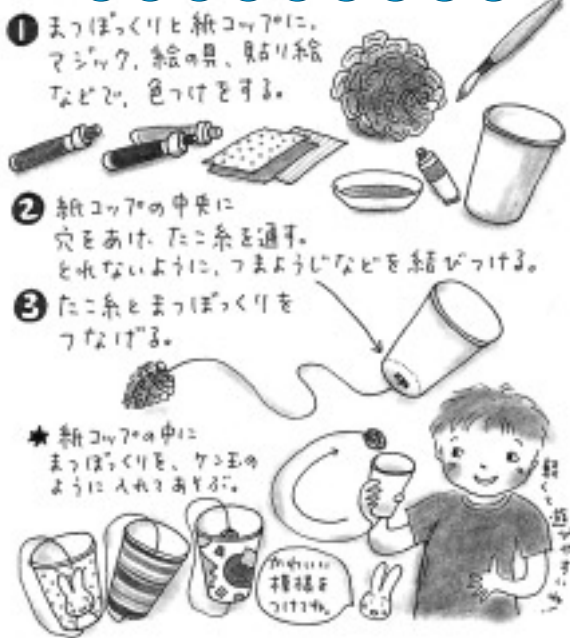 ❶ まつぼっくりと紙コップに、
マジック、絵の具、貼り絵
などで、色つけをする。
❷ 紙コップの中央に
穴をあけ、たこ糸を通す。
とれないように、つまようじなどを結びつける。
❸ たこ糸とまつぼっくりを
つなげる。
★ 紙コップの中に
まつぼっくりを、ケン玉の
ように入れてあそぶ。
かわいい
模様を
つけてね。